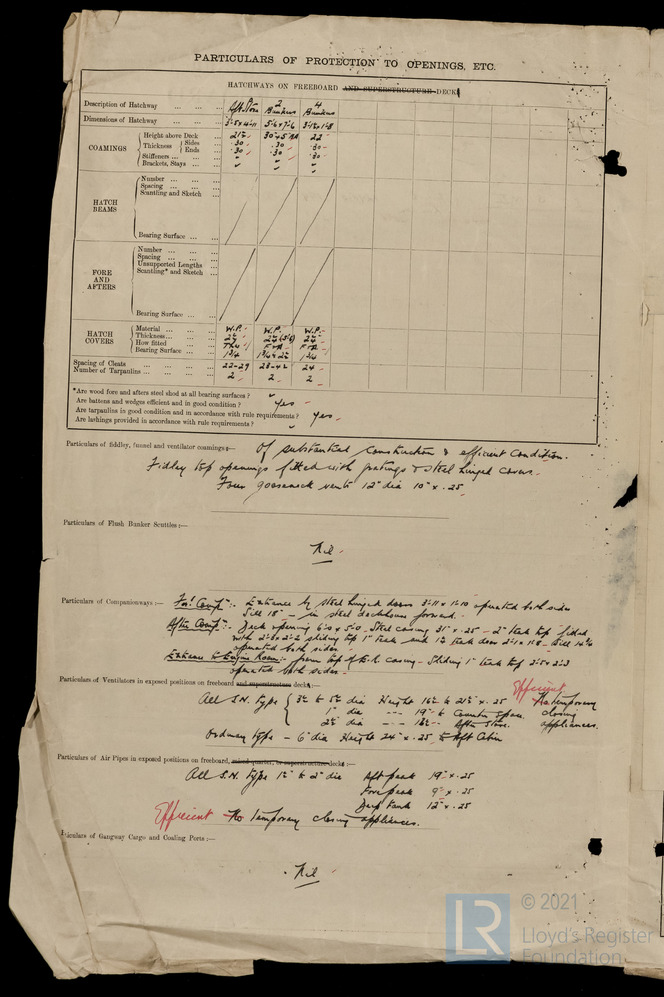 PARTICULARS OF PROTECTION TO OPENINGS, ETC.
HATCHWAYS ON FREEBOARD AND SUPERSTRUCTURE DECK
Description of Hatchway ... ... ... Aft Store 2 Bunkers 4 Bunkers
Dimensions of Hatchway ... ... ...
COAMINGS
Height above Deck
Thickness { Sides .30 .30 .30
Ends .30 .30 .30
Stiffeners ... ...
Brackets, Stays ... ...
HATCH BEAMS
Number ... ... ...
Spacing ... ... ...
Scantling and Sketch ...
Bearing Surface ... ...
FORE AND AFTERS
Number ... ... ...
Spacing ... ... ...
Unsupported Lengths
Scantling* and Sketch ...
Bearing Surface ... ...
HATCH COVERS
Material ... ... W.P. W.P. W.P.
Thickness ... ...
How fitted ... F&A F&A
Bearing Surface ... ... 1 3/4 1 3/4
Spacing of Cleats ... ... ... 22-29 28-42 24
Number of Tarpaulins ... ... ... 2 2 2
*Are wood fore and afters steel shod at all bearing surfaces?
Are battens and wedges efficient and in good condition? Yes
Are tarpaulins in good condition and in accordance with rule requirements? Yes
Are lashings provided in accordance with rule requirements?
Particulars of fiddley, funnel and ventilator coamings:— Of substantial construction & efficient condition.
Fidley top openings fitted with gratings & steel hinged covers.
Four gooseneck vents 12" dia 10" x .25
Particulars of Flush Bunker Scuttles:—
Nil.
Particulars of Companionways:— For'd Comp:- Entrance by steel hinged doors 3-11 x 1-10 operated both sides
Sill 18" - in steel deckhouse forward.
After Comp:- Deck opening 6-0 x 5-0. Steel casing 31" x .25 - 2" teak top fitted
with 2-8 x 2-2 sliding top 1" teak and 1 1/2 teak door
operated both sides.
Entrance to Engine Room:- from top of E.R. casing - Sliding 1" teak top
operated both sides -
Particulars of Ventilators in exposed positions on freeboard and superstructure decks:—
All S.N. type { dia Height to x .25
dia --- 19" to Counter space.
dia --- After Store.
Ordinary type - 6" dia Height 24" x .25 to Aft Cabin
Efficient
No temporary
closing
appliances.
Particulars of Air Pipes in exposed positions on freeboard, raised quarter, or superstructure decks:—
All S.N. type to 2" dia Aft peak 19" x .25
Fore peak 9" x .25
Deep tank 12" x .25
Efficient No temporary closing appliances.
iculars of Gangway Cargo and Coaling Ports:—
Nil
LR
© 2021
Lloyd's Register
Foundation